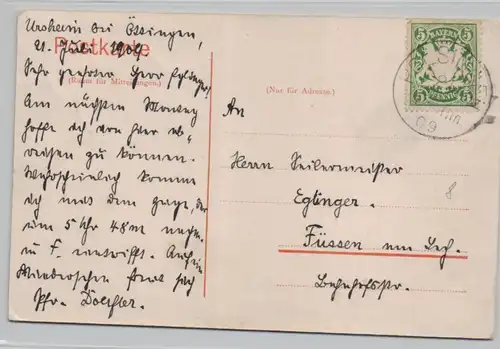 Ursheim bei Öttingen,
21. Juli 1909
Postkarte
Sehr geehrter Herr Eglinger!
(Raum für Mitteilungen.)
Am nächsten Montag
hoffe ich von hier ab-
reisen zu können.
Wahrscheinlich komme
ich mit dem Zuge, der
um 5 Uhr 48 m nachm.
in F. eintrifft. Auf ein
Wiedersehen freut sich
Pfr. Doerfler.
(Nur für Adresse.)
An
Herrn Seilermeister
Eglinger.
Füssen am Lech.
Bahnhofstr.
8
5 BAYERN 5
5 PFENNIG 5
09